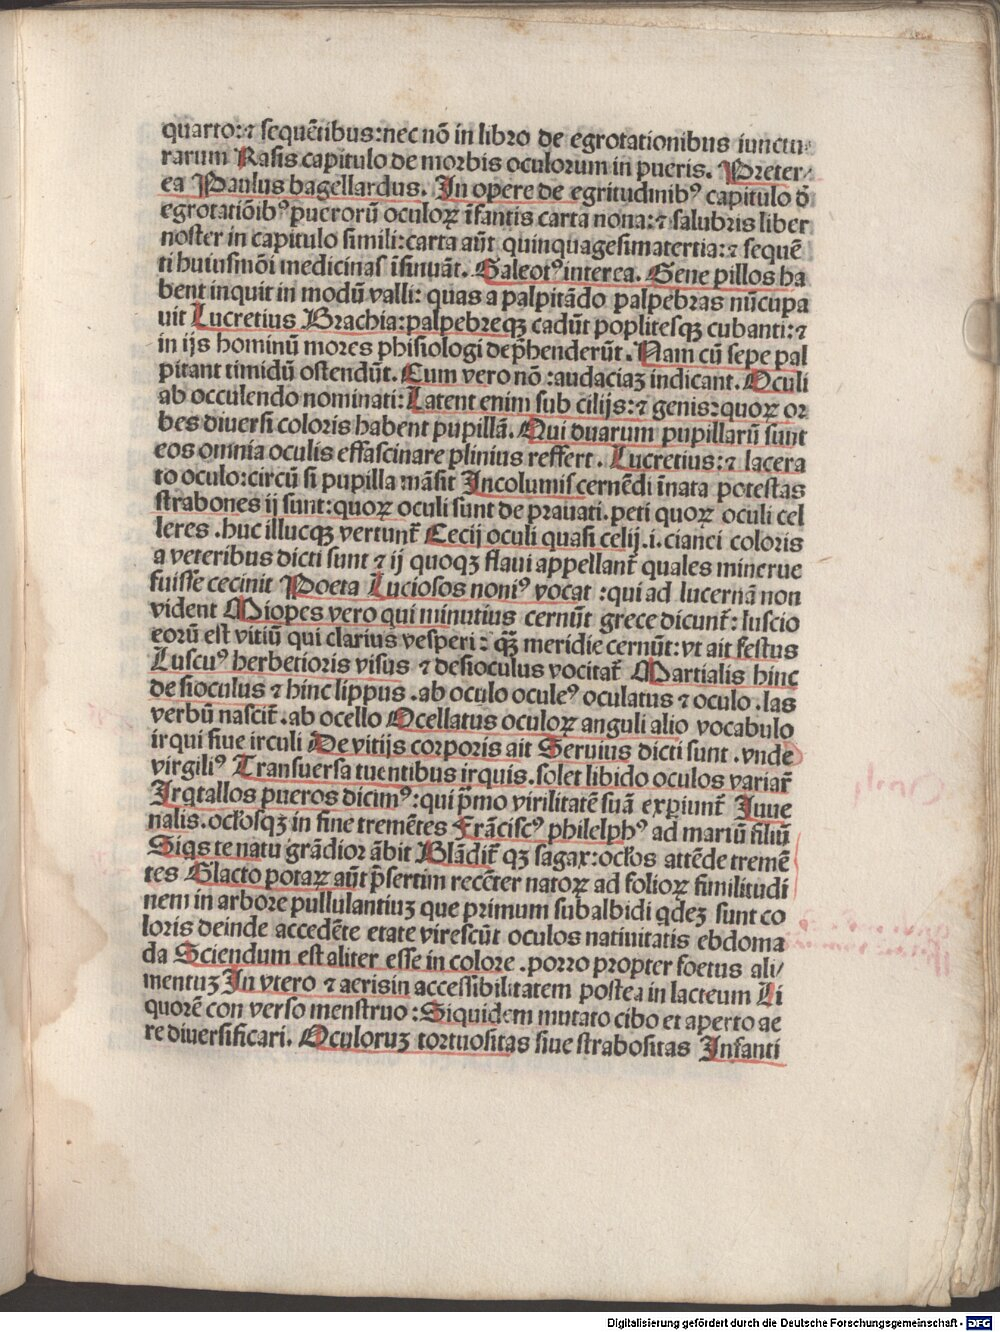 quarto:⁊ sequētibus:nec nō in libro de egrotationibus iunctu
rarum Rasis capitulo de morbis oculorum in pueris. Preter⸗
ea Paulus bagellardus. In opere de egritudinibꝰ capitulo d̄
egrotatiōibꝰ puerorū oculoꝝ īfantis carta nona:⁊ salubris liber
noster in capitulo simili:carta aūt quinquagesimatertia:⁊ sequē
ti huiusmōi medicinas īsinuāt. Galeotꝰ interea. Gene pillos ha
bent inquit in modū valli: quas a palpitādo palpebras nūcupa
uit Lucretius Brachia:palpebreqꝫ cadūt poplitesqꝫ cubanti:⁊
in ijs hominū mores phisiologi dep̄henderūt. Nam cū sepe pal
pitant timidū ostendūt. Cum vero nō :audaciaꝫ indicant. Oculi
ab occulendo nominati: Latent enim sub cilijs:⁊ genis:quoꝝ or
bes diuersi coloris habent pupillā. Qui duarum pupillarū sunt
eos omnia oculis effascinare plinius reffert. Lucretius:⁊ lacera
to oculo:circū si pupilla māsit Incolumis cernēdi īnata potestas
strabones ij sunt:quoꝝ oculi sunt de prauati. peti quoꝝ oculi cel
leres .huc illucqꝫ vertunt᷑ Cecij oculi quasi celij .i. cianei coloris
a veteribus dicti sunt ⁊ ij quoqꝫ flaui appellant᷑ quales minerue
fuisse cecinit Poeta Luciosos noniꝰ vocat :qui ad lucernā non
vident Miopes vero qui minutius cernūt grece dicunt᷑: luscio
eorū est vitiū qui clarius vesperi: qꝫ̄ meridie cernūt: vt ait festus
Luscuꝰ herbetioris visus ⁊ desioculus vocitat᷑ Martialis hinc
de sioculus ⁊ hinc lippus .ab oculo oculeꝰ oculatus ⁊ oculo .las
verbū nascit᷑ .ab ocello Ocellatus oculoꝝ anguli alio vocabulo
irqui siue irculi De vitijs corporis ait Seruius dicti sunt .vnde
virgiliꝰ Transuersa tuentibus irquis. solet libido oculos variar᷑
Irqtallos pueros dicimꝰ:qui p̄mo virilitatē suā expiunt᷑ Iuue
nalis. ocłosqꝫ in fine tremētes Frāciscꝰ philelphꝰ ad martiū filiū
Siqs te natu grādior ābit Blādit᷑ qꝫ sagax: ocłos attēde tremē
tes Glacto potaꝝ aūt p̄sertim recēter natoꝝ ad folioꝝ similitudi
nem in arbore pullulantiuꝫ que primum subalbidi qdeꝫ sunt co
loris deinde accedēte etate virescūt oculos natiuitatis ebdoma
da Sciendum est aliter esse in colore .porro propter foetus ali/
mentuꝫ In vtero ⁊ aerisin accessibilitatem postea in lacteum Li
quorē con verso menstruo :Siquidem mutato cibo et aperto ae
re diuersificari. Oculoruꝫ tortuositas siue strabositas Infanti
Digitalisierung gefördert durch die Deutsche Forschungsgemeinschaft - DFG